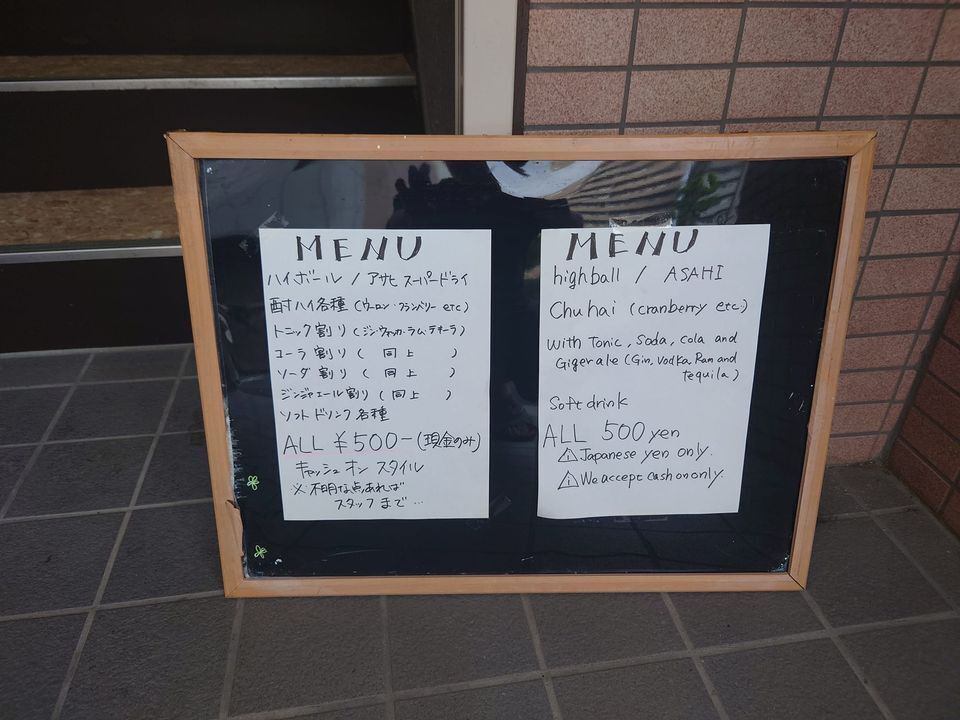 MENU
ハイボール / アサヒ スーパードライ
酎ハイ各種 (ウーロン・クランベリー etc)
トニック割り (ジン・ウォッカ・ラム・テキーラ)
コーラ割り ( 同上 )
ソーダ割り ( 同上 )
ジンジャエール割り ( 同上 )
ソフトドリンク各種
ALL ¥500- (現金のみ)
キャッシュ オン スタイル
※不明な点あれば
スタッフまで…
MENU
highball / ASAHI
Chuhai (cranberry etc)
with Tonic, Soda, cola and
Gigerale (Gin, Vodka, Ram and
tequila)
Soft drink
ALL 500 yen
⚠ Japanese yen only.
⚠ We accept cash on only.